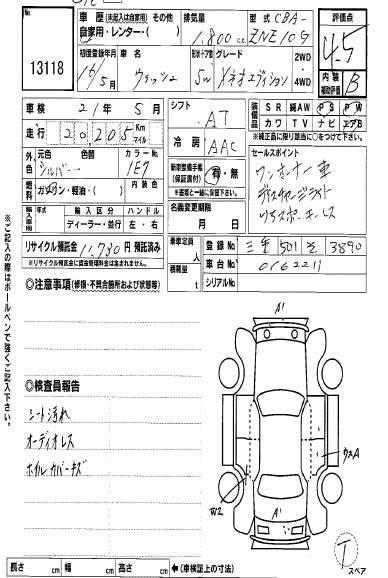 13118
車歴 (未記入は自家用) その他
自家用・レンター( )
排気量 1,800cc
型式 CBA-
ZNE10G
評価点
4.5
初度登録年月 16/5月
車名 ウィッシュ
形状・ドア数 5W
グレード Xネオエディション
2WD
4WD
内装補助評価 B
車検 21年 5月
シフト AT
装備品 SR 純AW PS PW
カワ TV ナビ エアB
※純正品に限り該当に○をつけて下さい。
走行 20,205 Km マイル
冷房 AAC
セールスポイント
ワンオーナー車
ディスチャージライト
リアスポ・キーレス
外色 元色 シルバー 色替 カラーNo. 1E7
燃料 ガソリン・軽油・( ) 内装色
新車整備手帳 (保証書付) 有・無
※書類と一緒に保管して下さい。
輸入車用 輸入区分 ハンドル
ディーラー・並行 左・右
名義変更期限 月 日
リサイクル預託金 11,730 円 預託済み
※リサイクル預託金に資金管理料金は含まれません。
乗車定員 人
積載量 t
登録No 三重 501 そ 3890
車台No 0162211
シリアルNo
◎注意事項 (修復・不具合箇所および状態等)
※ご記入の際はボールペンで強くご記入下さい。
A1
◎検査員報告
シート汚れ
オーディオレス
ホイルカバーキズ
ウスA
W2
A1
T
スペア
長さ cm 幅 cm 高さ cm ←(車検証上の寸法)